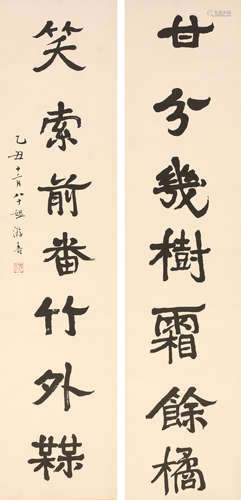 甘分幾樹霜餘橘
笑索前番竹外
乙丑十二月八十